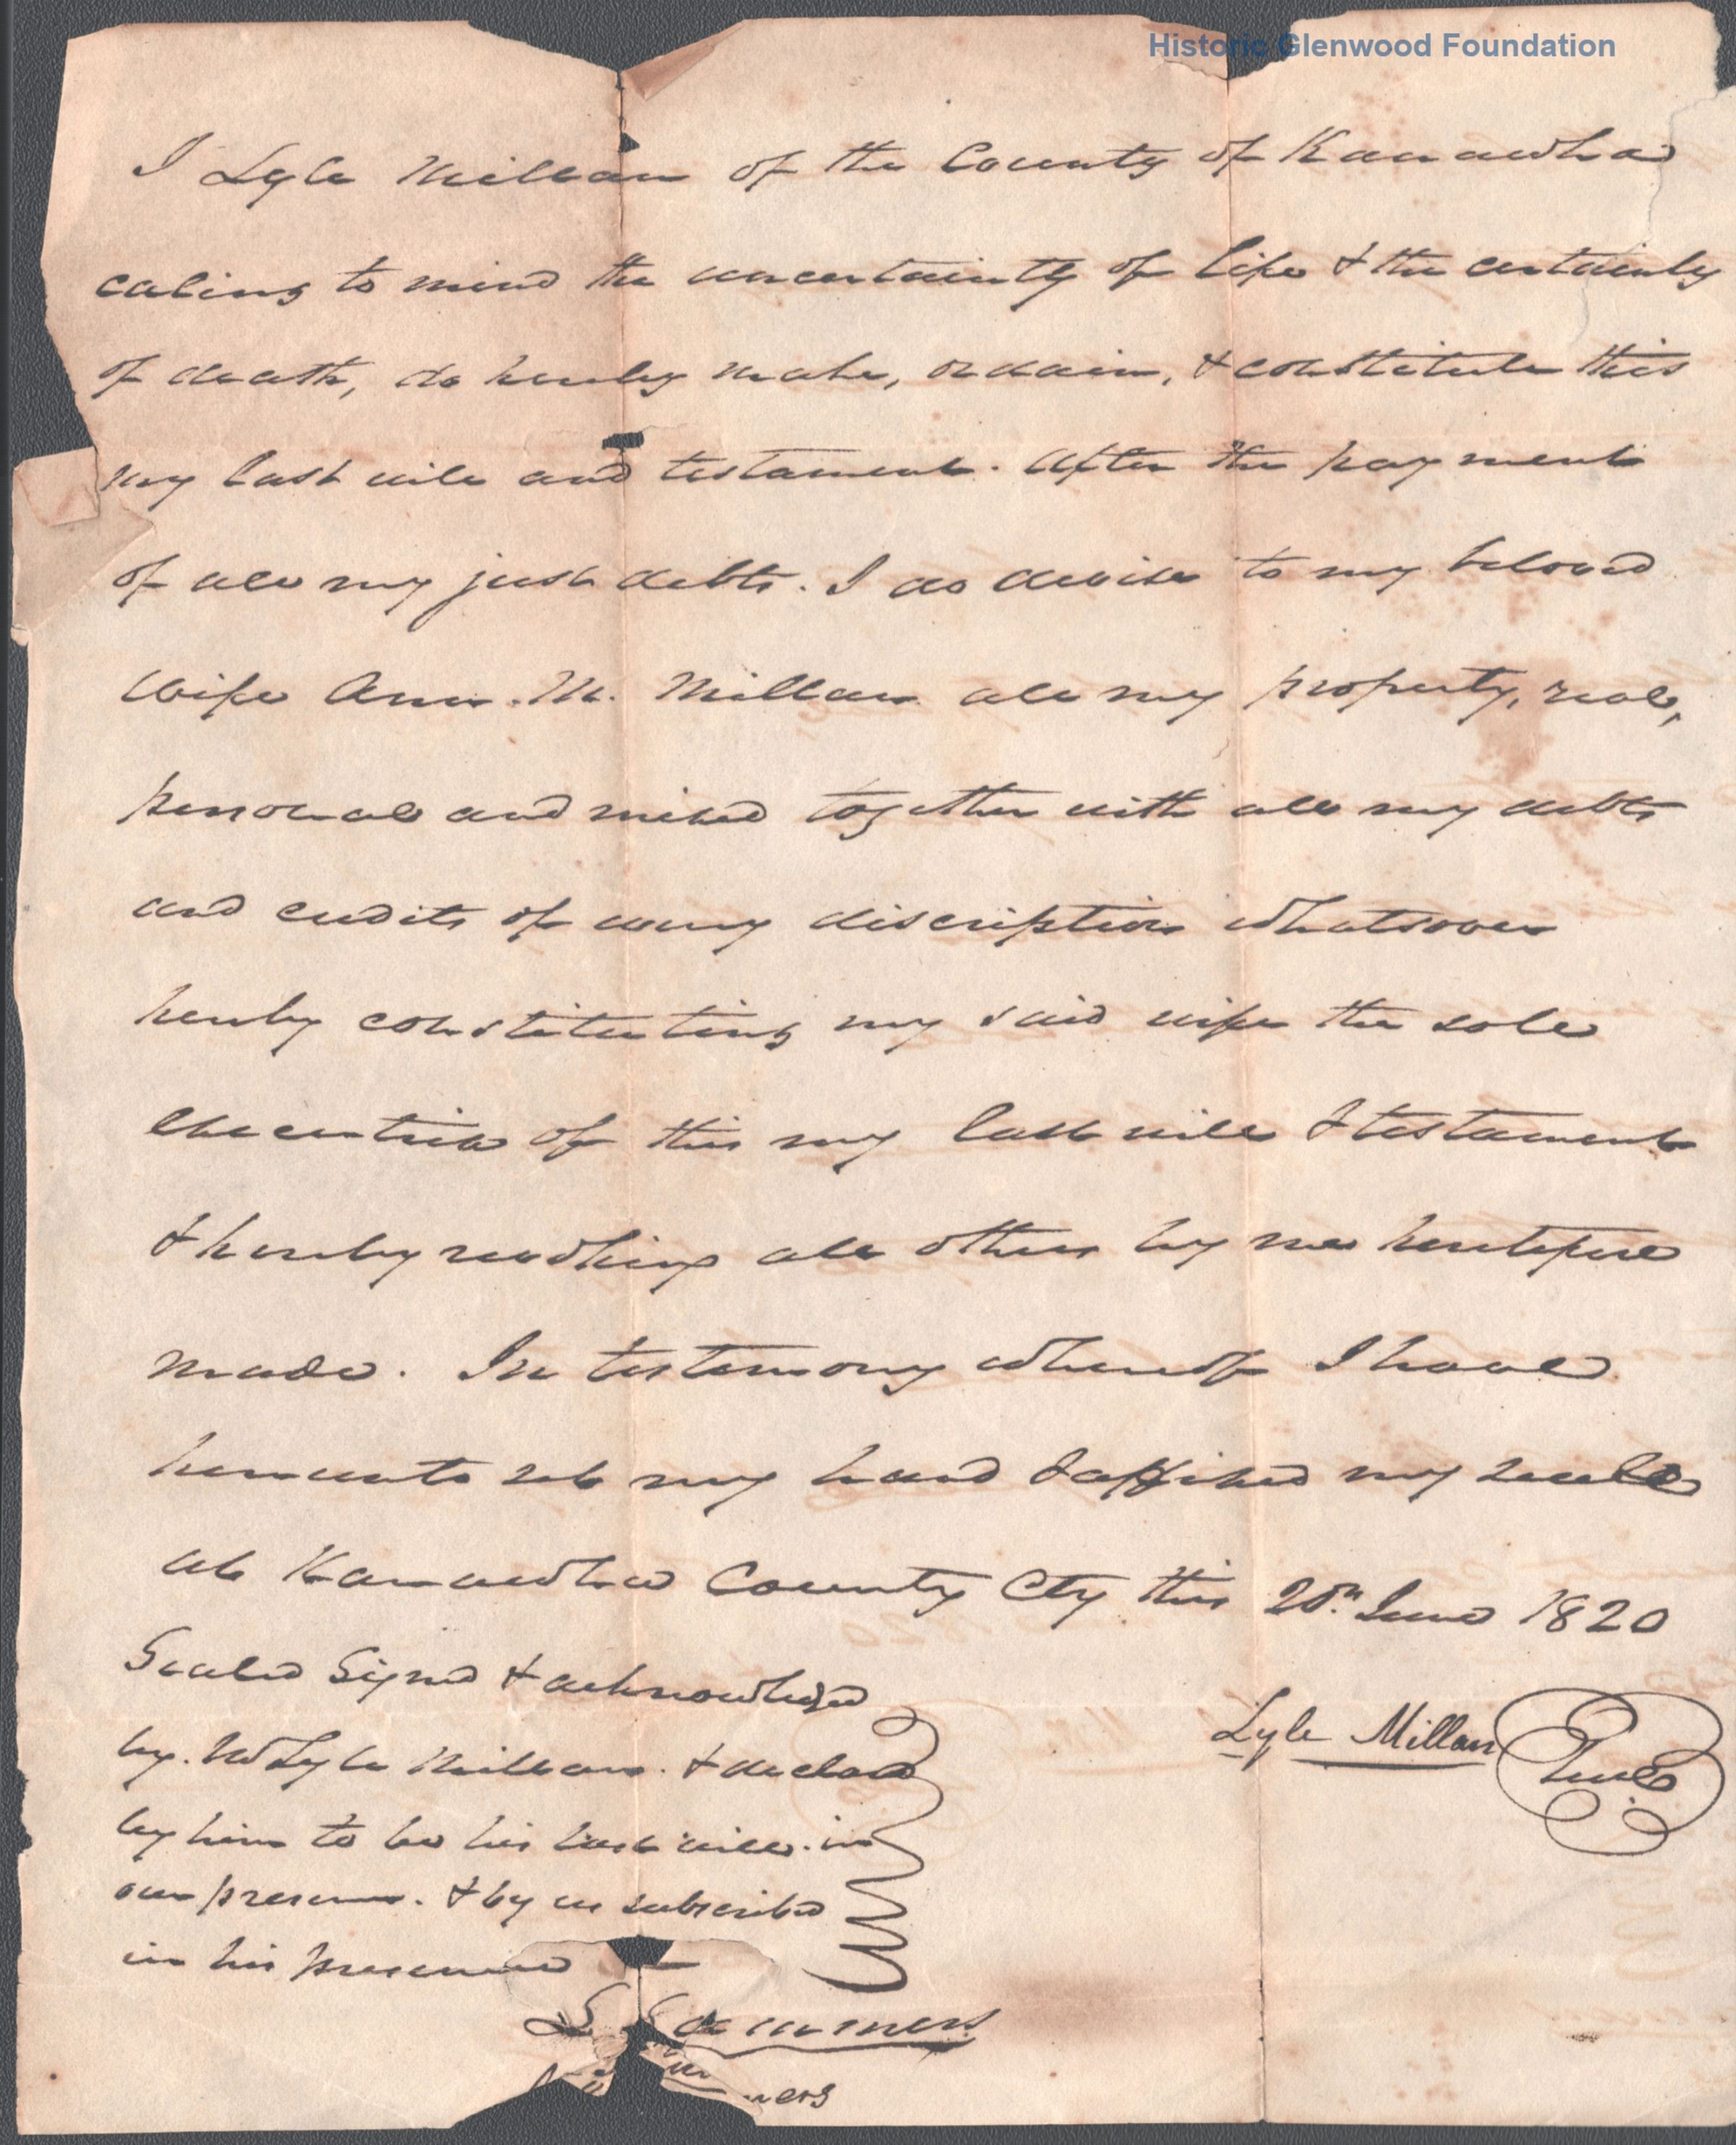 Historic Glenwood Foundation
I Lyle Millan of the County of Kanawha
caling to mind the uncertainty of life & the certainty
of death, do hereby make, ordain, & constitute this
my last will and testament. After the payment
of all my just debts. I do devise to my beloved
wife Ann. M. Millan all my property, real,
personal and mixed together with all my debts
and credits of every discription whatsoever
hereby constituting my said wife the sole
executrix of this my last will & testament
& hereby revoking all others by me heretofore
made. In testimony whereof I have
hereunto set my hand & affixed my seal
at Kanawha County Cty this 20th June 1820
Sealed Signed & acknowledged
by. Lyle Millan. & declared
by him to be his last will. in
our presence. & by us subscribed
in his presence
Lyle Millan Seal
L Summers